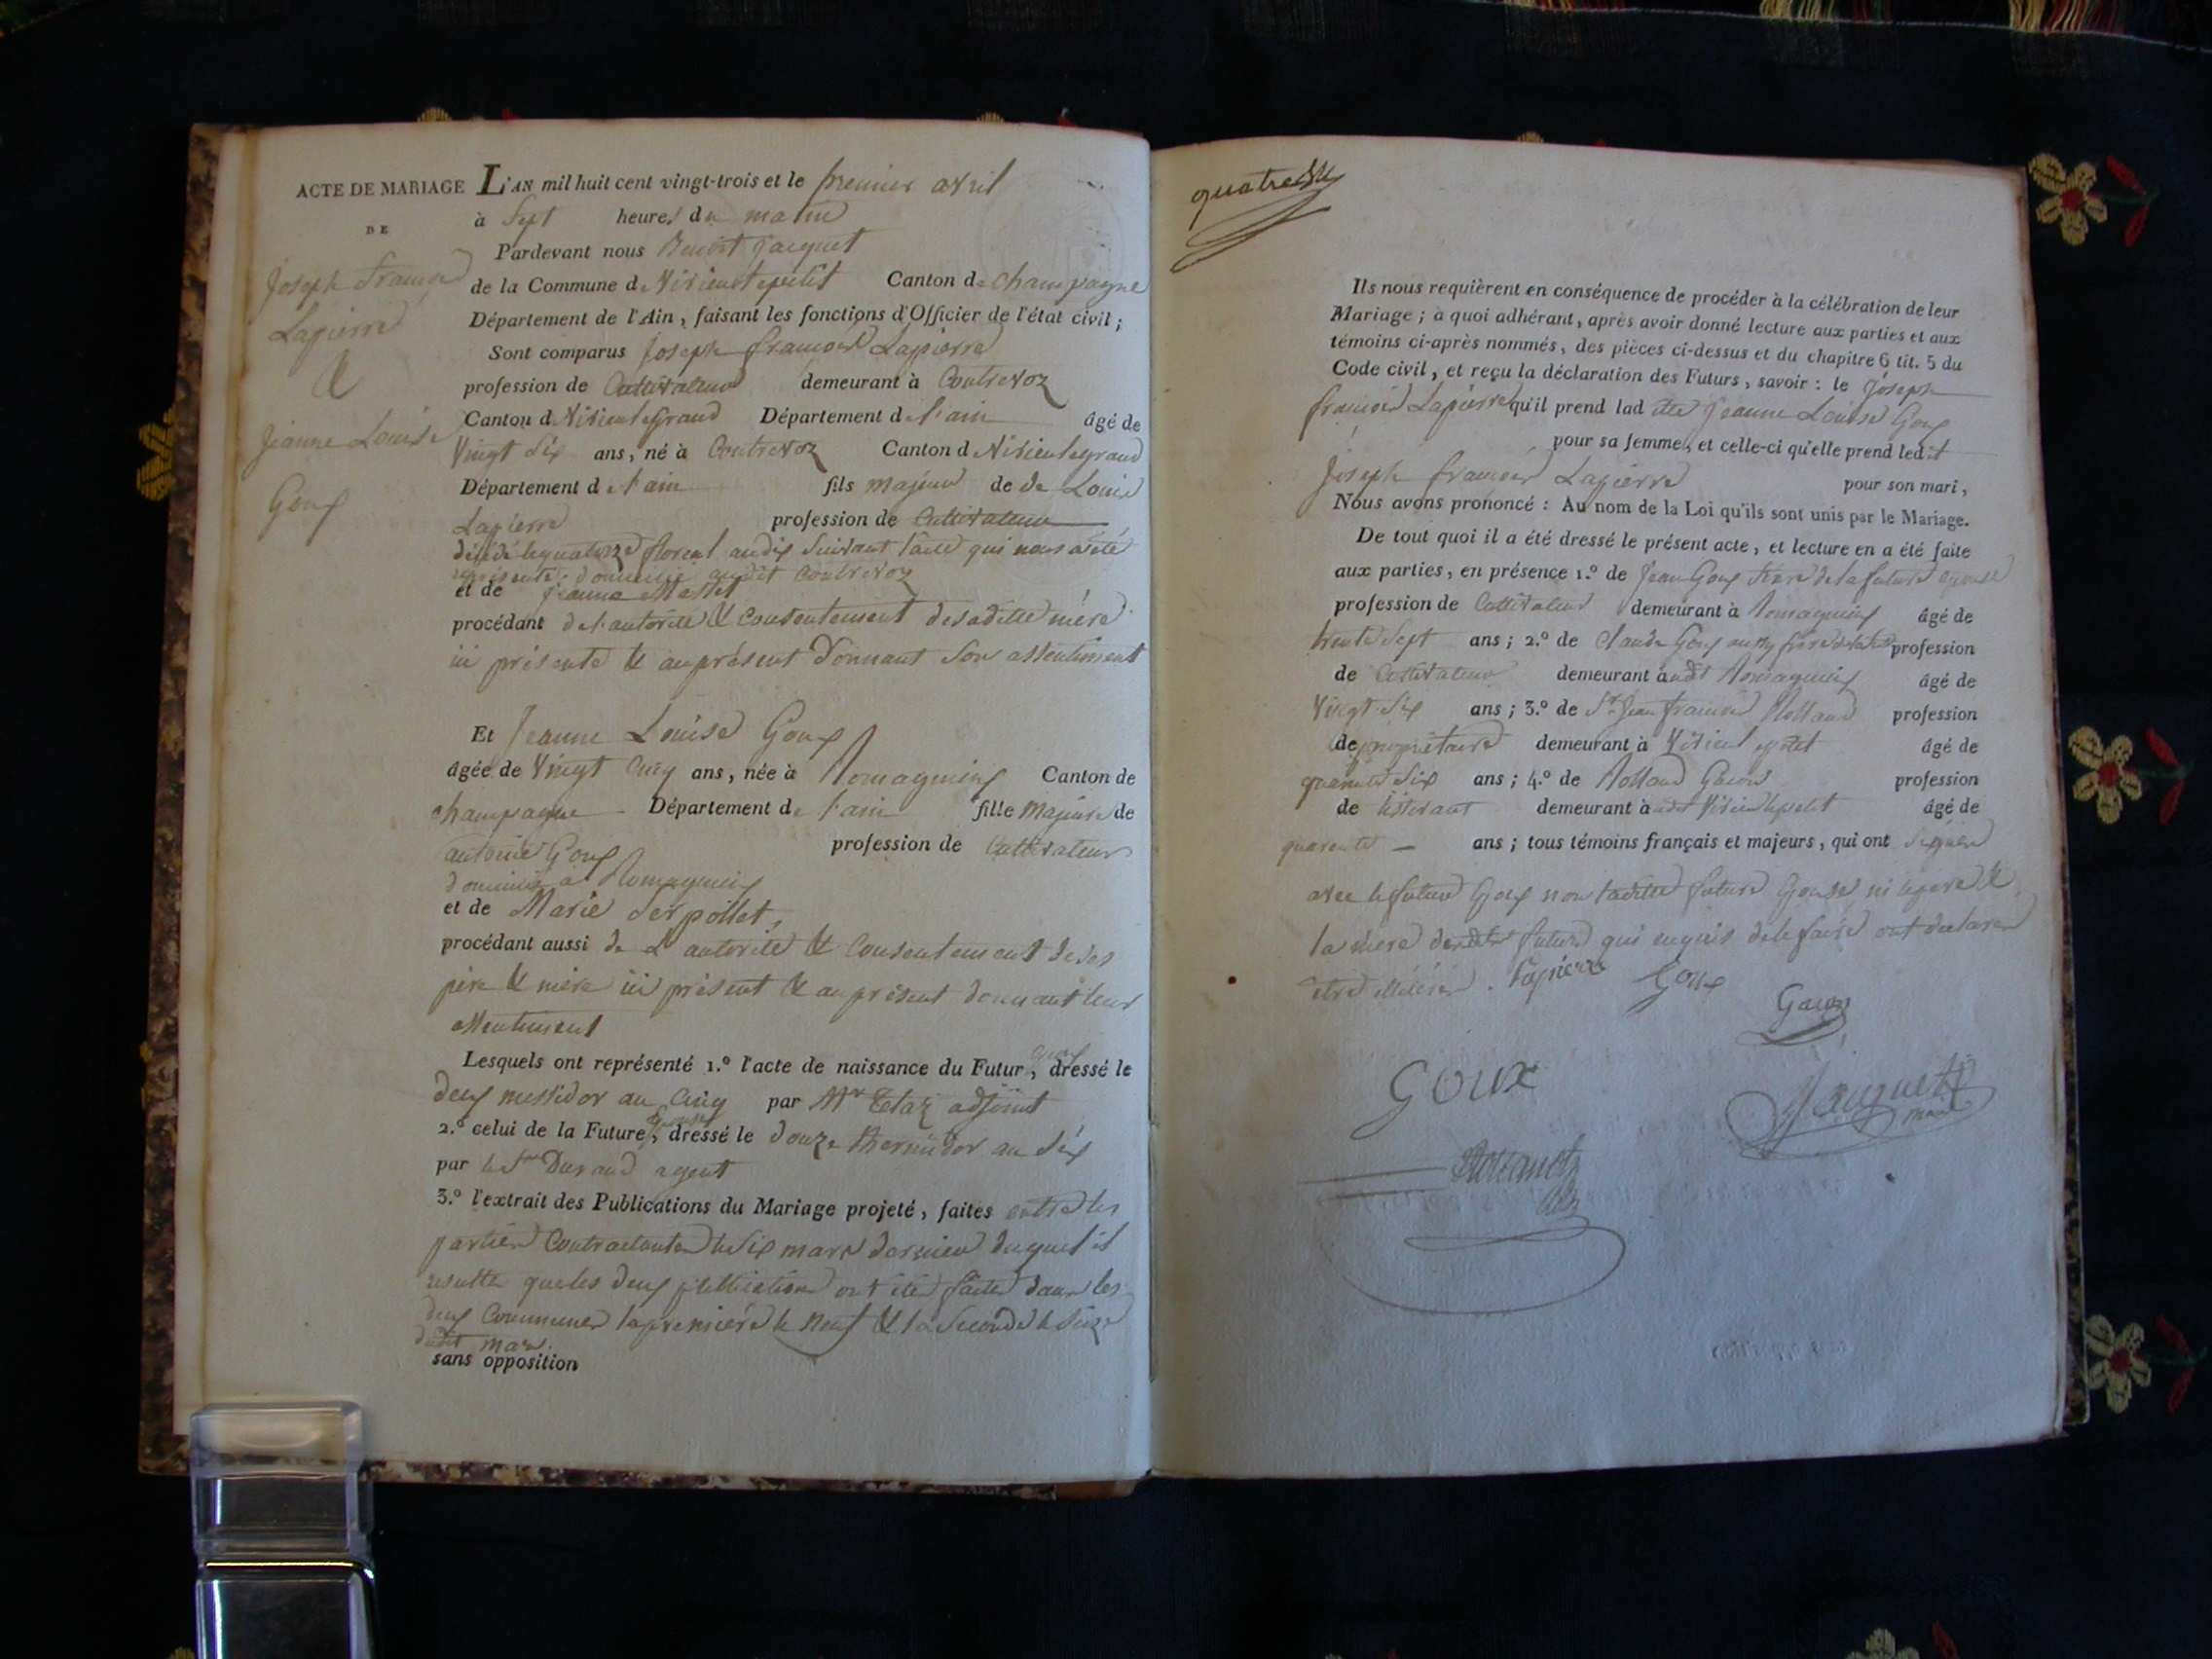 ACTE DE MARIAGE
DE
Joseph françois
Lapierre
&
Jeanne Louise
Goux
L'AN mil huit cent vingt-trois et le premier avril
à Sept heures du matin
Pardevant nous Benoit Jacquet
de la Commune de Virieulepetit Canton de champagne
Département de l'Ain, faisant les fonctions d'Officier de l'état civil;
Sont comparus Joseph françois Lapierre
profession de Cultivateur demeurant à Contrevoz
Canton de Virieulegrand Département de l'ain âgé de
Vingt Six ans, né à Contrevoz Canton de Virieulegrand
Département de l'ain fils majeur de de Louis
Lapierre profession de Cultivateur
décédé le quatorze floreal an dix suivant l'acte qui nous a été
représenté; domicilié audit Contrevoz
et de Jeanne Masset
procédant de l'autorité & consentement de sa ditte mère
ici présente & au présent donnant son assentiment
Et Jeanne Louise Goux
âgée de Vingt Cinq ans, née à Romagnieux Canton de
champagne Département de l'ain fille majeure de
antoine Goux profession de Cultivateur
domicilié a Romagnieux
et de Marie Serpollet,
procédant aussi de L'autorité & consentement de ses
père & mère ici présent & au présent donnant leur
assentiment
Lesquels ont représenté 1.º l'acte de naissance du Futur, dressé le
deux messidor an Cinq par Mr adjoint
2.º celui de la Future, dressé le douze thermidor an Six
par le Sr Durand agent
3.º l'extrait des Publications du Mariage projeté, faites entre les
parties Contractantes le Six mars dernier duquel il
resulte que les deux publication ont été faites dans les
deux Communes la première le Neuf & la Seconde le Seize
dudit mars.
sans opposition
quatre
Ils nous requièrent en conséquence de procéder à la célébration de leur
Mariage; à quoi adhérant, après avoir donné lecture aux parties et aux
témoins ci-après nommés, des pièces ci-dessus et du chapitre 6 tit. 5 du
Code civil, et reçu la déclaration des Futurs, savoir: le Joseph
françois Lapierre qu'il prend lad itte Jeanne Louise Goux
pour sa femme, et celle-ci qu'elle prend ledit
Joseph françois Lapierre pour son mari,
Nous avons prononcé: Au nom de la Loi qu'ils sont unis par le Mariage.
De tout quoi il a été dressé le présent acte, et lecture en a été faite
aux parties, en présence 1.º de Jean Goux frère de la future épouse
profession de Cultivateur demeurant à Romagnieux âgé de
trente Sept ans; 2.º de Claude Goux aussi frère profession
de Cultivateur demeurant audit Romagnieux âgé de
Vingt Six ans; 3.º de Sr Jean françois Rolland profession
de propriétaire demeurant à Virieulepetit âgé de
quarante Six ans; 4.º de Rolland Gacon profession
de tisserant demeurant à udit Virieulepetit âgé de
quarante ans; tous témoins français et majeurs, qui ont signés
avec le futur Epoux non laditte future Epouse, ni le pere &
la mère futurs qui enquis de le faire ont declarer
etre illitérés. Lapierre Goux
Gacon
Goux
Jacquet
maire
Rolland